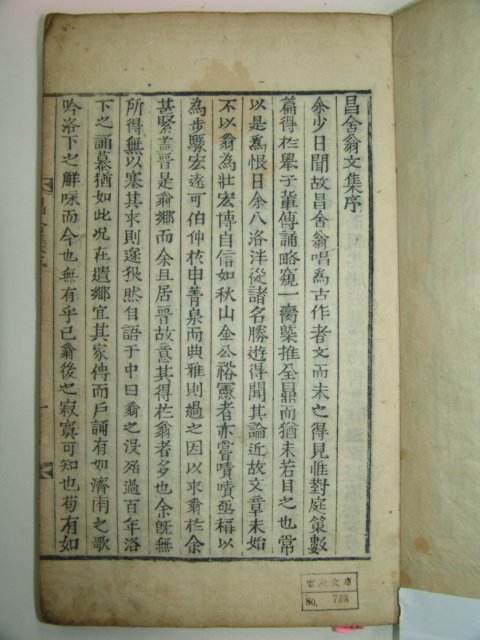 昌舍翁文集序
余少日聞故昌舍翁唱爲古作者文而未之得見惟對庭策數
篇得於擧子軰傳誦略窺一臠槩推全鼎而猶未若目之也常
以是爲恨日余入洛泮從諸名勝遊得聞其論近故文章未始
不以翁爲壯宏博自信如秋山金公裕憲者亦嘗嘖嘖亟稱以
爲步驟宏遠可伯仲於申菁泉而典雅則過之因以求翁於余
甚緊盖晉是翁鄕而余且居晉故意其得於翁者多也余旣無
所得無以塞其求則逡㹞然自語于中曰翁之沒殆過百年洛
下之誦慕猶如此况在遺鄕宜其家傳而戶誦有如濟南之歌
吟洛下之觧咏而今也無有乎已翁後之寂寞可知也苟有如
No. 786